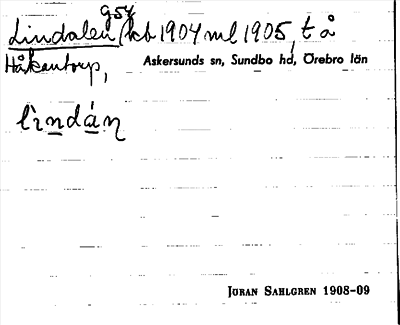 gsk
Lindalen, kb 1904 ml 1905, t å
Håkentorp, Askersunds sn, Sundbo hd, Örebro län
lìndán
JÖRAN SAHLGREN 1908-09